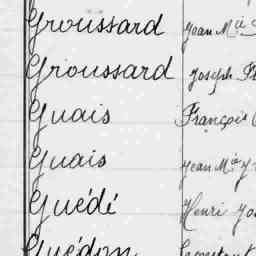 Groussard Jean M.ie
Grioussard Joseph
Guais François
Guais Jean M.ie
Guédé Henri
Guédon